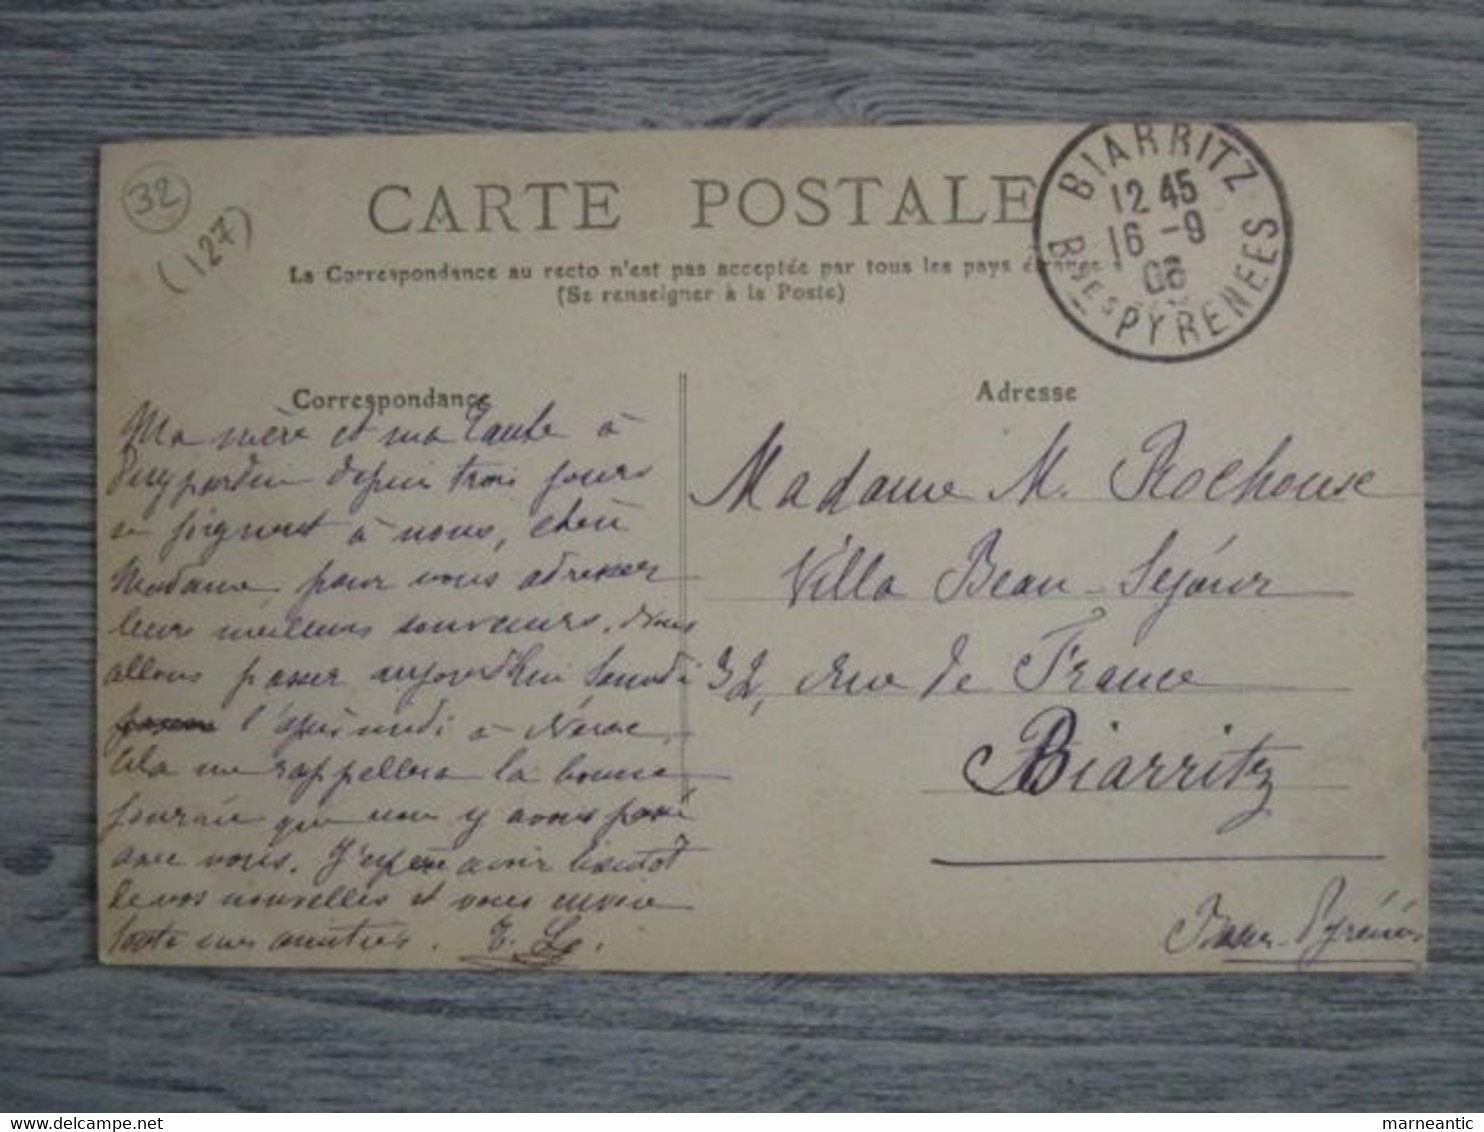 32
(127)
CARTE POSTALE
La Correspondance au recto n'est pas acceptée par tous les pays
(Se renseigner à la Poste)
BIARRITZ
12 45
16 -9
06
BSES PYRENEES
Correspondance
Ma mère et ma tante à
depuis trois jours
se joignent à nous, chère
Madame, pour vous adresser
leurs meilleurs souvenirs. Nous
allons passer aujourd'hui Samedi
l'après midi à Nérac,
cela me rappellera la bonne
journée que nous y avons passé
avec vous. J'espère avoir bientôt
de vos nouvelles et vous envoie
toutes mes amitiés.
Adresse
Madame M. Rochouse
Villa Beau-Séjour
32, rue de France
Biarritz
Basses-Pyrénées
marneantic